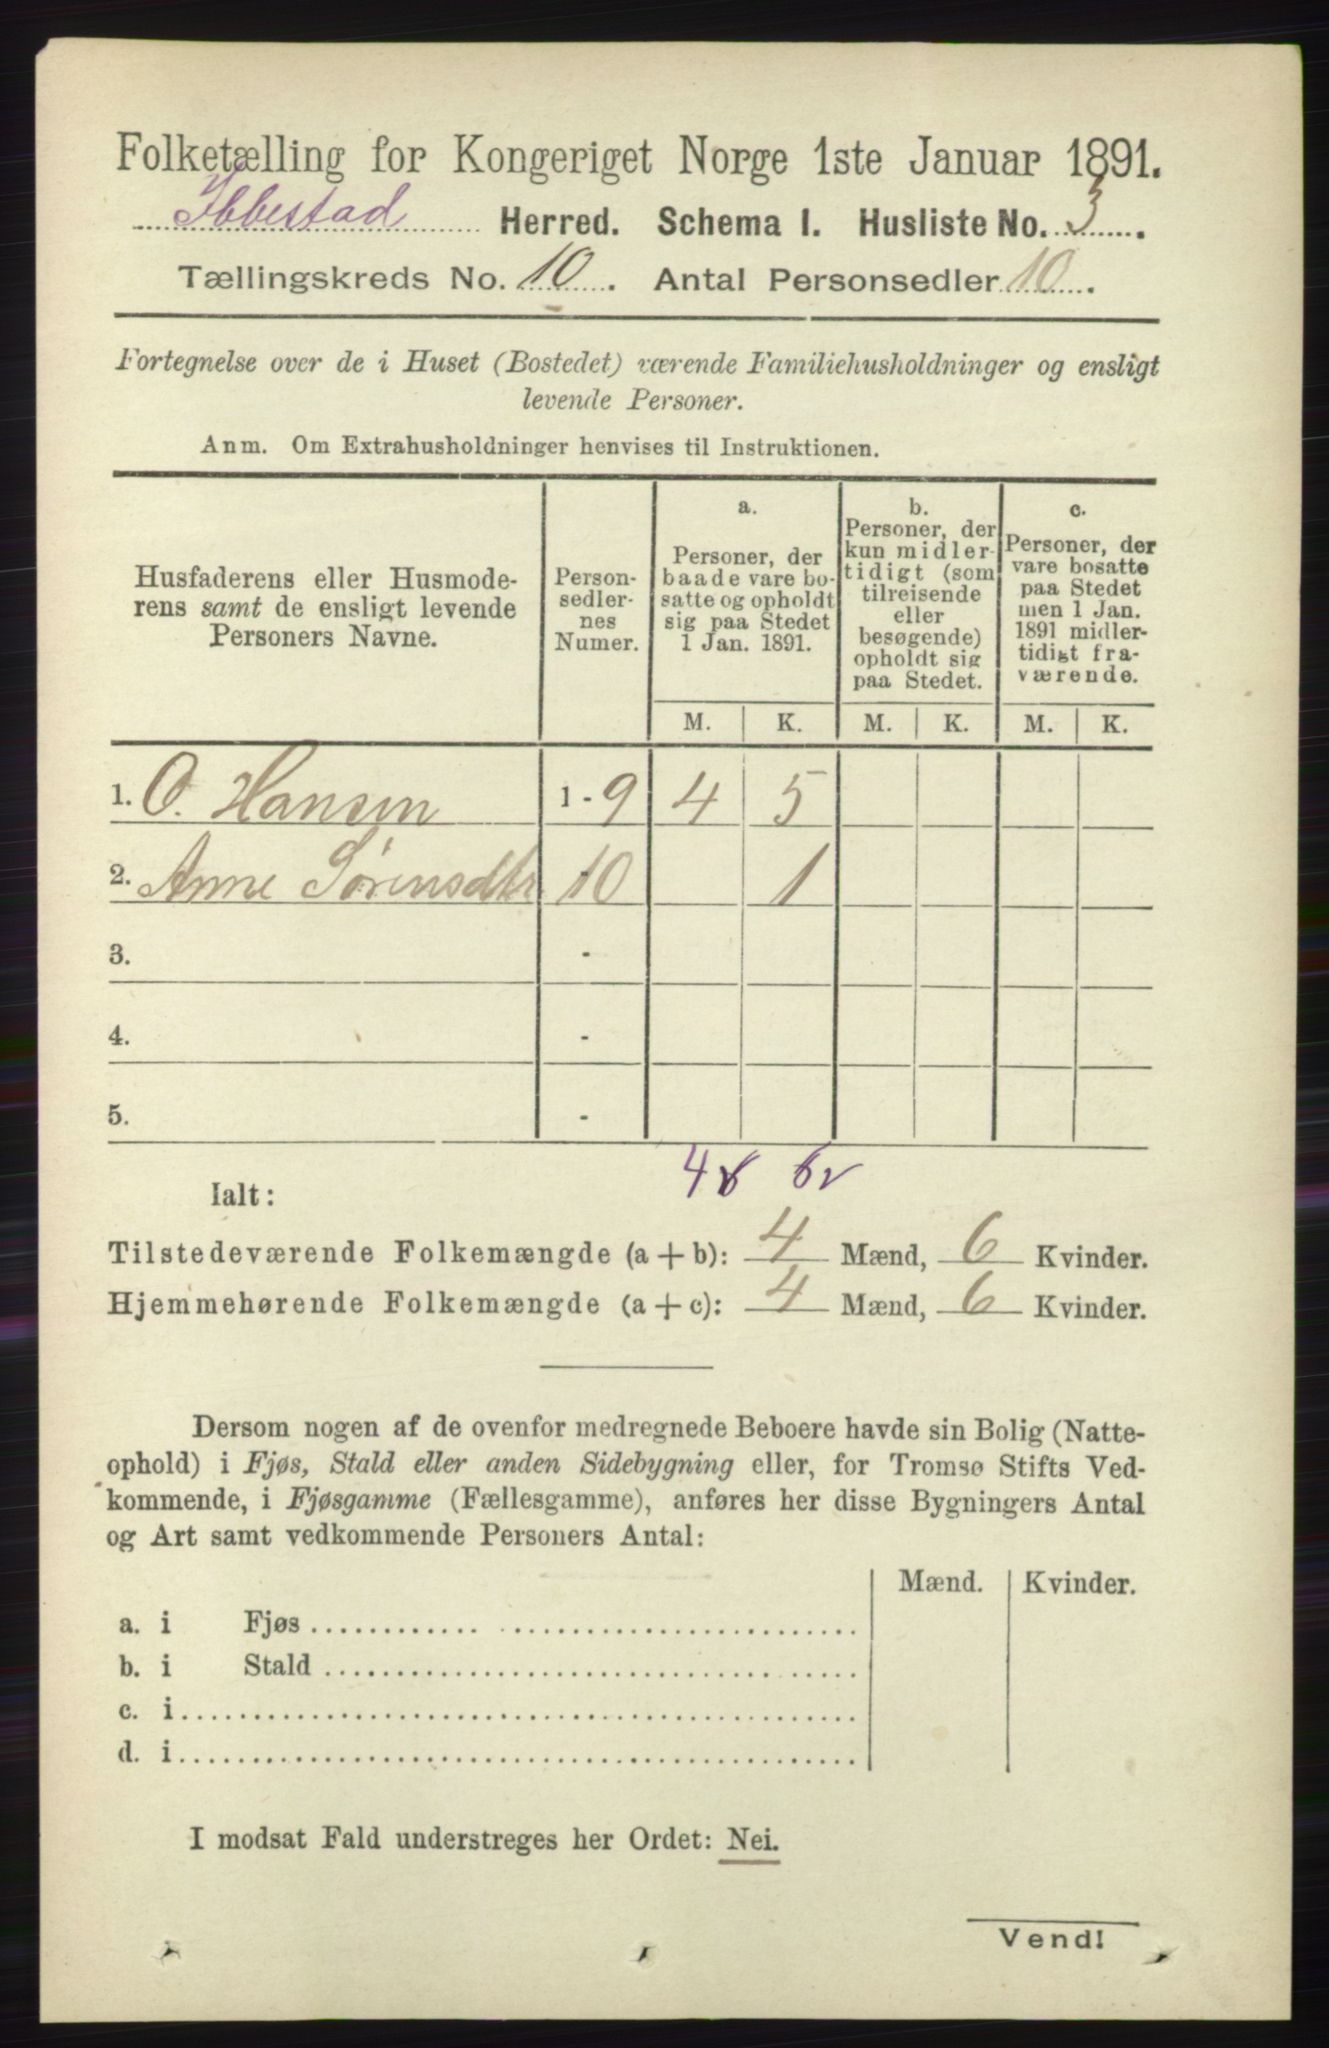 Folketælling for Kongeriget Norge 1ste Januar 1891.
Ibbestad Herred. Schema I. Husliste No. 3.
Tællingskreds No. 10. Antal Personsedler 10.
Fortegnelse over de i Huset (Bostedet) værende Familiehusholdninger og ensligt
levende Personer.
Anm. Om Extrahusholdninger henvises til Instruktionen.
Husfaderens eller Husmode-
rens samt de ensligt levende
Personers Navne.
Person-
sedler-
nes
Numer.
a.
Personer, der
baade vare bo-
satte og opholdt
sig paa Stedet
1 Jan. 1891.
b.
Personer, der
kun midler-
tidigt (som
tilreisende
eller
besøgende)
opholdt sig
paa Stedet.
c.
Personer, der
vare bosatte
paa Stedet
men 1 Jan.
1891 midler-
tidigt fra-
værende.
M. K. M. K. M. K.
1. O. Hansen 1 - 9 4 5
2. Anne Sørensdtr 10 1
3. -
4. -
5. -
4 6
Ialt:
Tilstedeværende Folkemængde (a + b): 4 Mænd, 6 Kvinder.
Hjemmehørende Folkemængde (a + c): 4 Mænd, 6 Kvinder.
Dersom nogen af de ovenfor medregnede Beboere havde sin Bolig (Natte-
ophold) i Fjøs, Stald eller anden Sidebygning eller, for Tromsø Stifts Ved-
kommende, i Fjøsgamme (Fællesgamme), anføres her disse Bygningers Antal
og Art samt vedkommende Personers Antal:
Mænd. Kvinder.
a. i Fjøs
b. i Stald
c. i
d. i
I modsat Fald understreges her Ordet: Nei.
Vend!